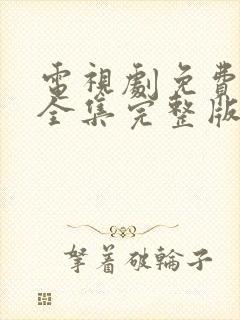 電視劇免費
全集完整版
拏著破輪子